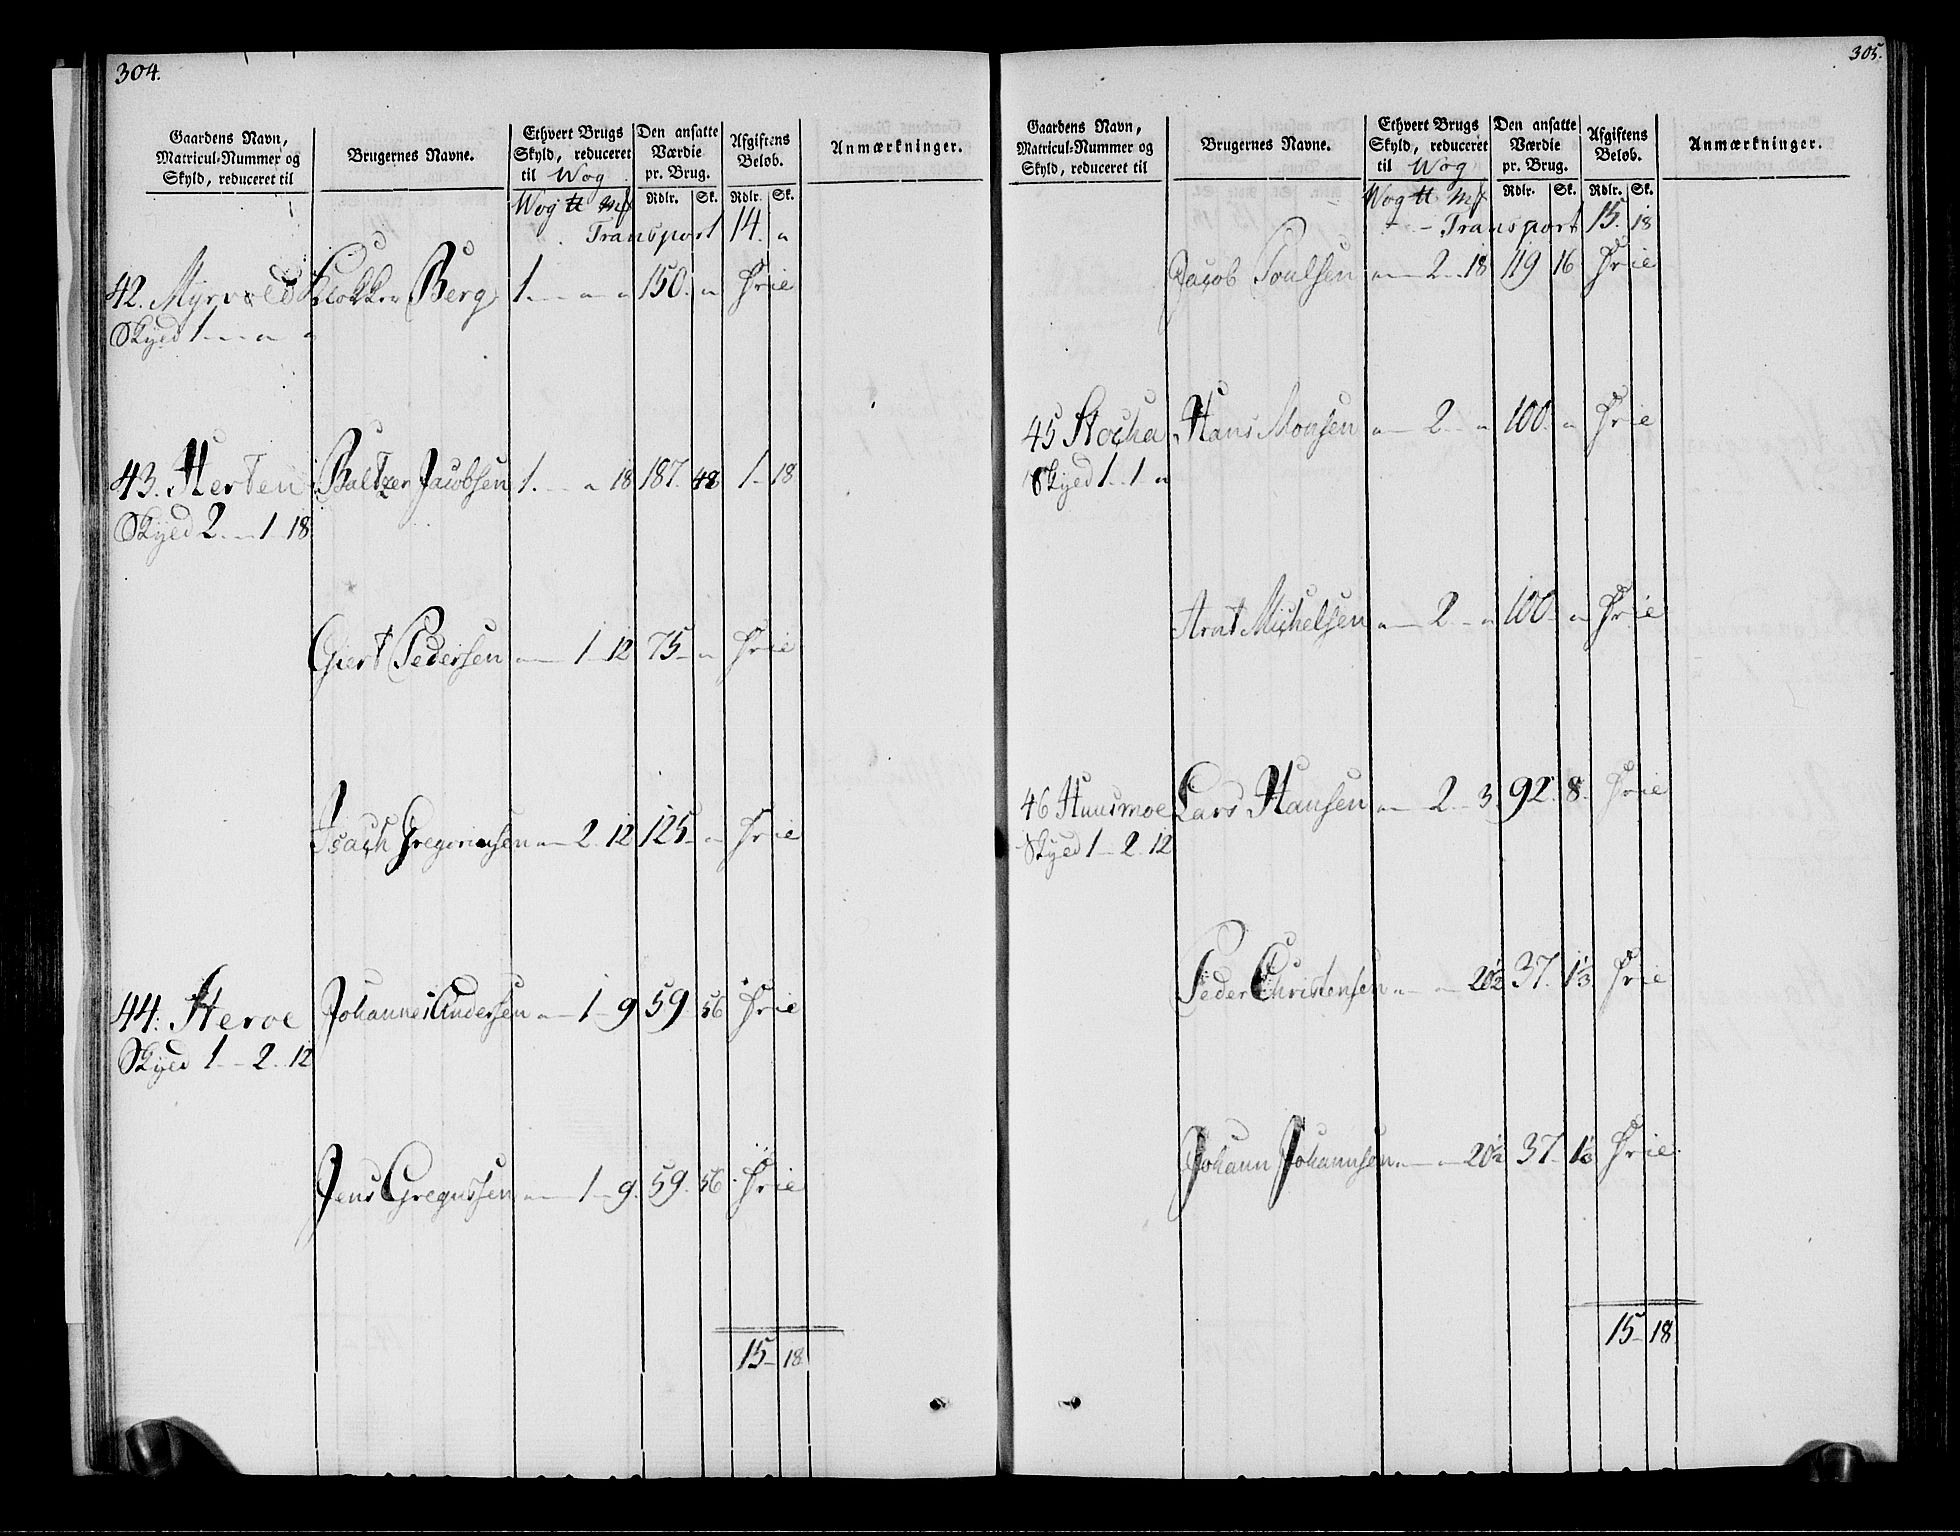 304.
Gaardens Navn, Matricul-Nummer og Skyld, reduceret til
Brugernes Navne.
Ethvert Brugs Skyld, reduceret til Wog
Den ansatte Værdie pr. Brug.
Afgiftens Beløb.
Anmærkninger.
Wog ℔ Mk Rdlr. Sk. Rdlr. Sk.
Transport 14. "
42. Myrvold Klokker Berg 1. " " 150. " Frie
Skyld 1 " "
43. Herten Baltzer Jacobsen 1. " 18 187. 48 1 - 18
Skyld 2. - 1 - 18
Giert Pedersen " 1 - 12 75 - " Frie
Isach Gregoriusen " 2. 12 125 - " Frie
44. Herøe Johannes Andersen " 1 - 9 59. 56 Frie
Skyld 1 - 2. 12
Jens Gregussen " 1 - 9. 59. 56 Frie
15 - 18
305.
Gaardens Navn, Matricul-Nummer og Skyld, reduceret til
Brugernes Navne.
Ethvert Brugs Skyld, reduceret til Wog
Den ansatte Værdie pr. Brug.
Afgiftens Beløb.
Anmærkninger.
Wog ℔ Mk Rdlr. Sk. Rdlr. Sk.
Transport 15. 18
Jacob Poulsen " 2 - 18 119 16 Frie
45 Hans Monsen " 2. " 100. " Frie
Skyld 1 - 1 "
Arnt Michelsen " 2 - " 100 - " Frie
46 Huusmoe Lars Hansen " 2 - 3. 92. 8. Frie
Skyld 1 - 2. 12
Peder Christensen " " 20½ 37. 13 Frie
Johann Johannsen " " 20½ 37 - 13 Frie
15 - 18